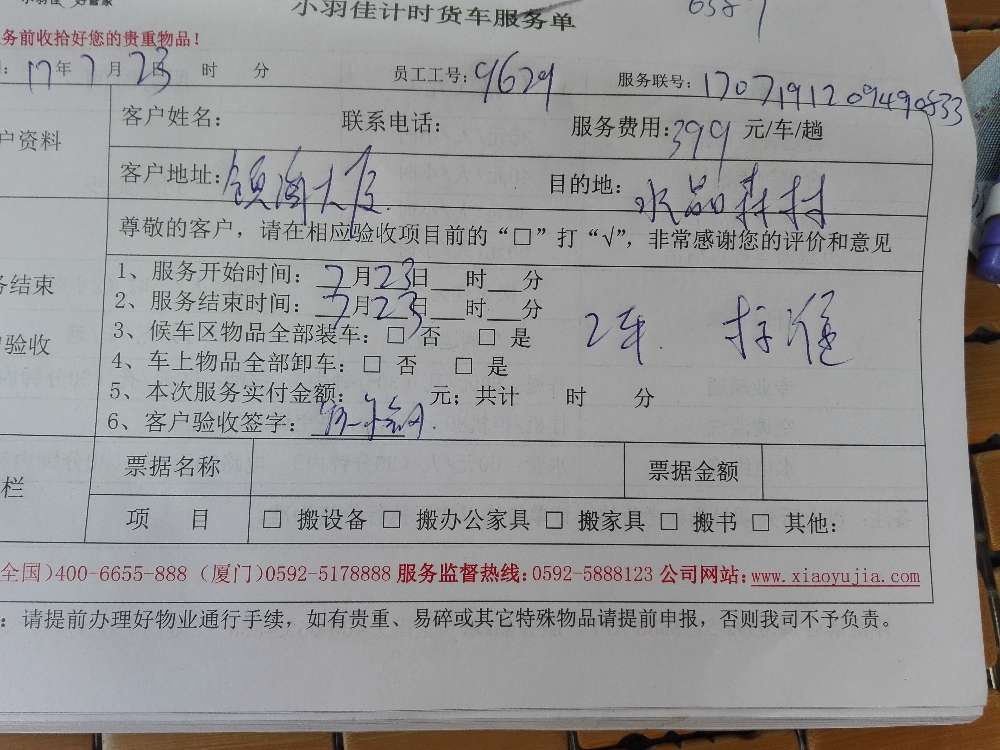 小羽佳 好管家
小羽佳计时货车服务单
务前收拾好您的贵重物品！
: 17年7月23日 时 分 员工工号: 9629 服务联号: 1707191209490833
户资料
客户姓名: 联系电话: 服务费用:399 元/车/趟
客户地址: 大厦 目的地: 水晶森林
尊敬的客户，请在相应验收项目前的“□”打“√”，非常感谢您的评价和意见
务结束
验收
1、服务开始时间: 7月23日 时 分
2、服务结束时间: 7月23日 时 分
3、候车区物品全部装车: □ 否 □ 是
4、车上物品全部卸车: □ 否 □ 是
2车. 标准
5、本次服务实付金额: 元; 共计 时 分
6、客户验收签字:
栏
票据名称 票据金额
项 目 □ 搬设备 □ 搬办公家具 □ 搬家具 □ 搬书 □ 其他:
全国)400-6655-888 (厦门)0592-5178888 服务监督热线:0592-5888123 公司网站:www.xiaoyujia.com
: 请提前办理好物业通行手续，如有贵重、易碎或其它特殊物品请提前申报，否则我司不予负责。